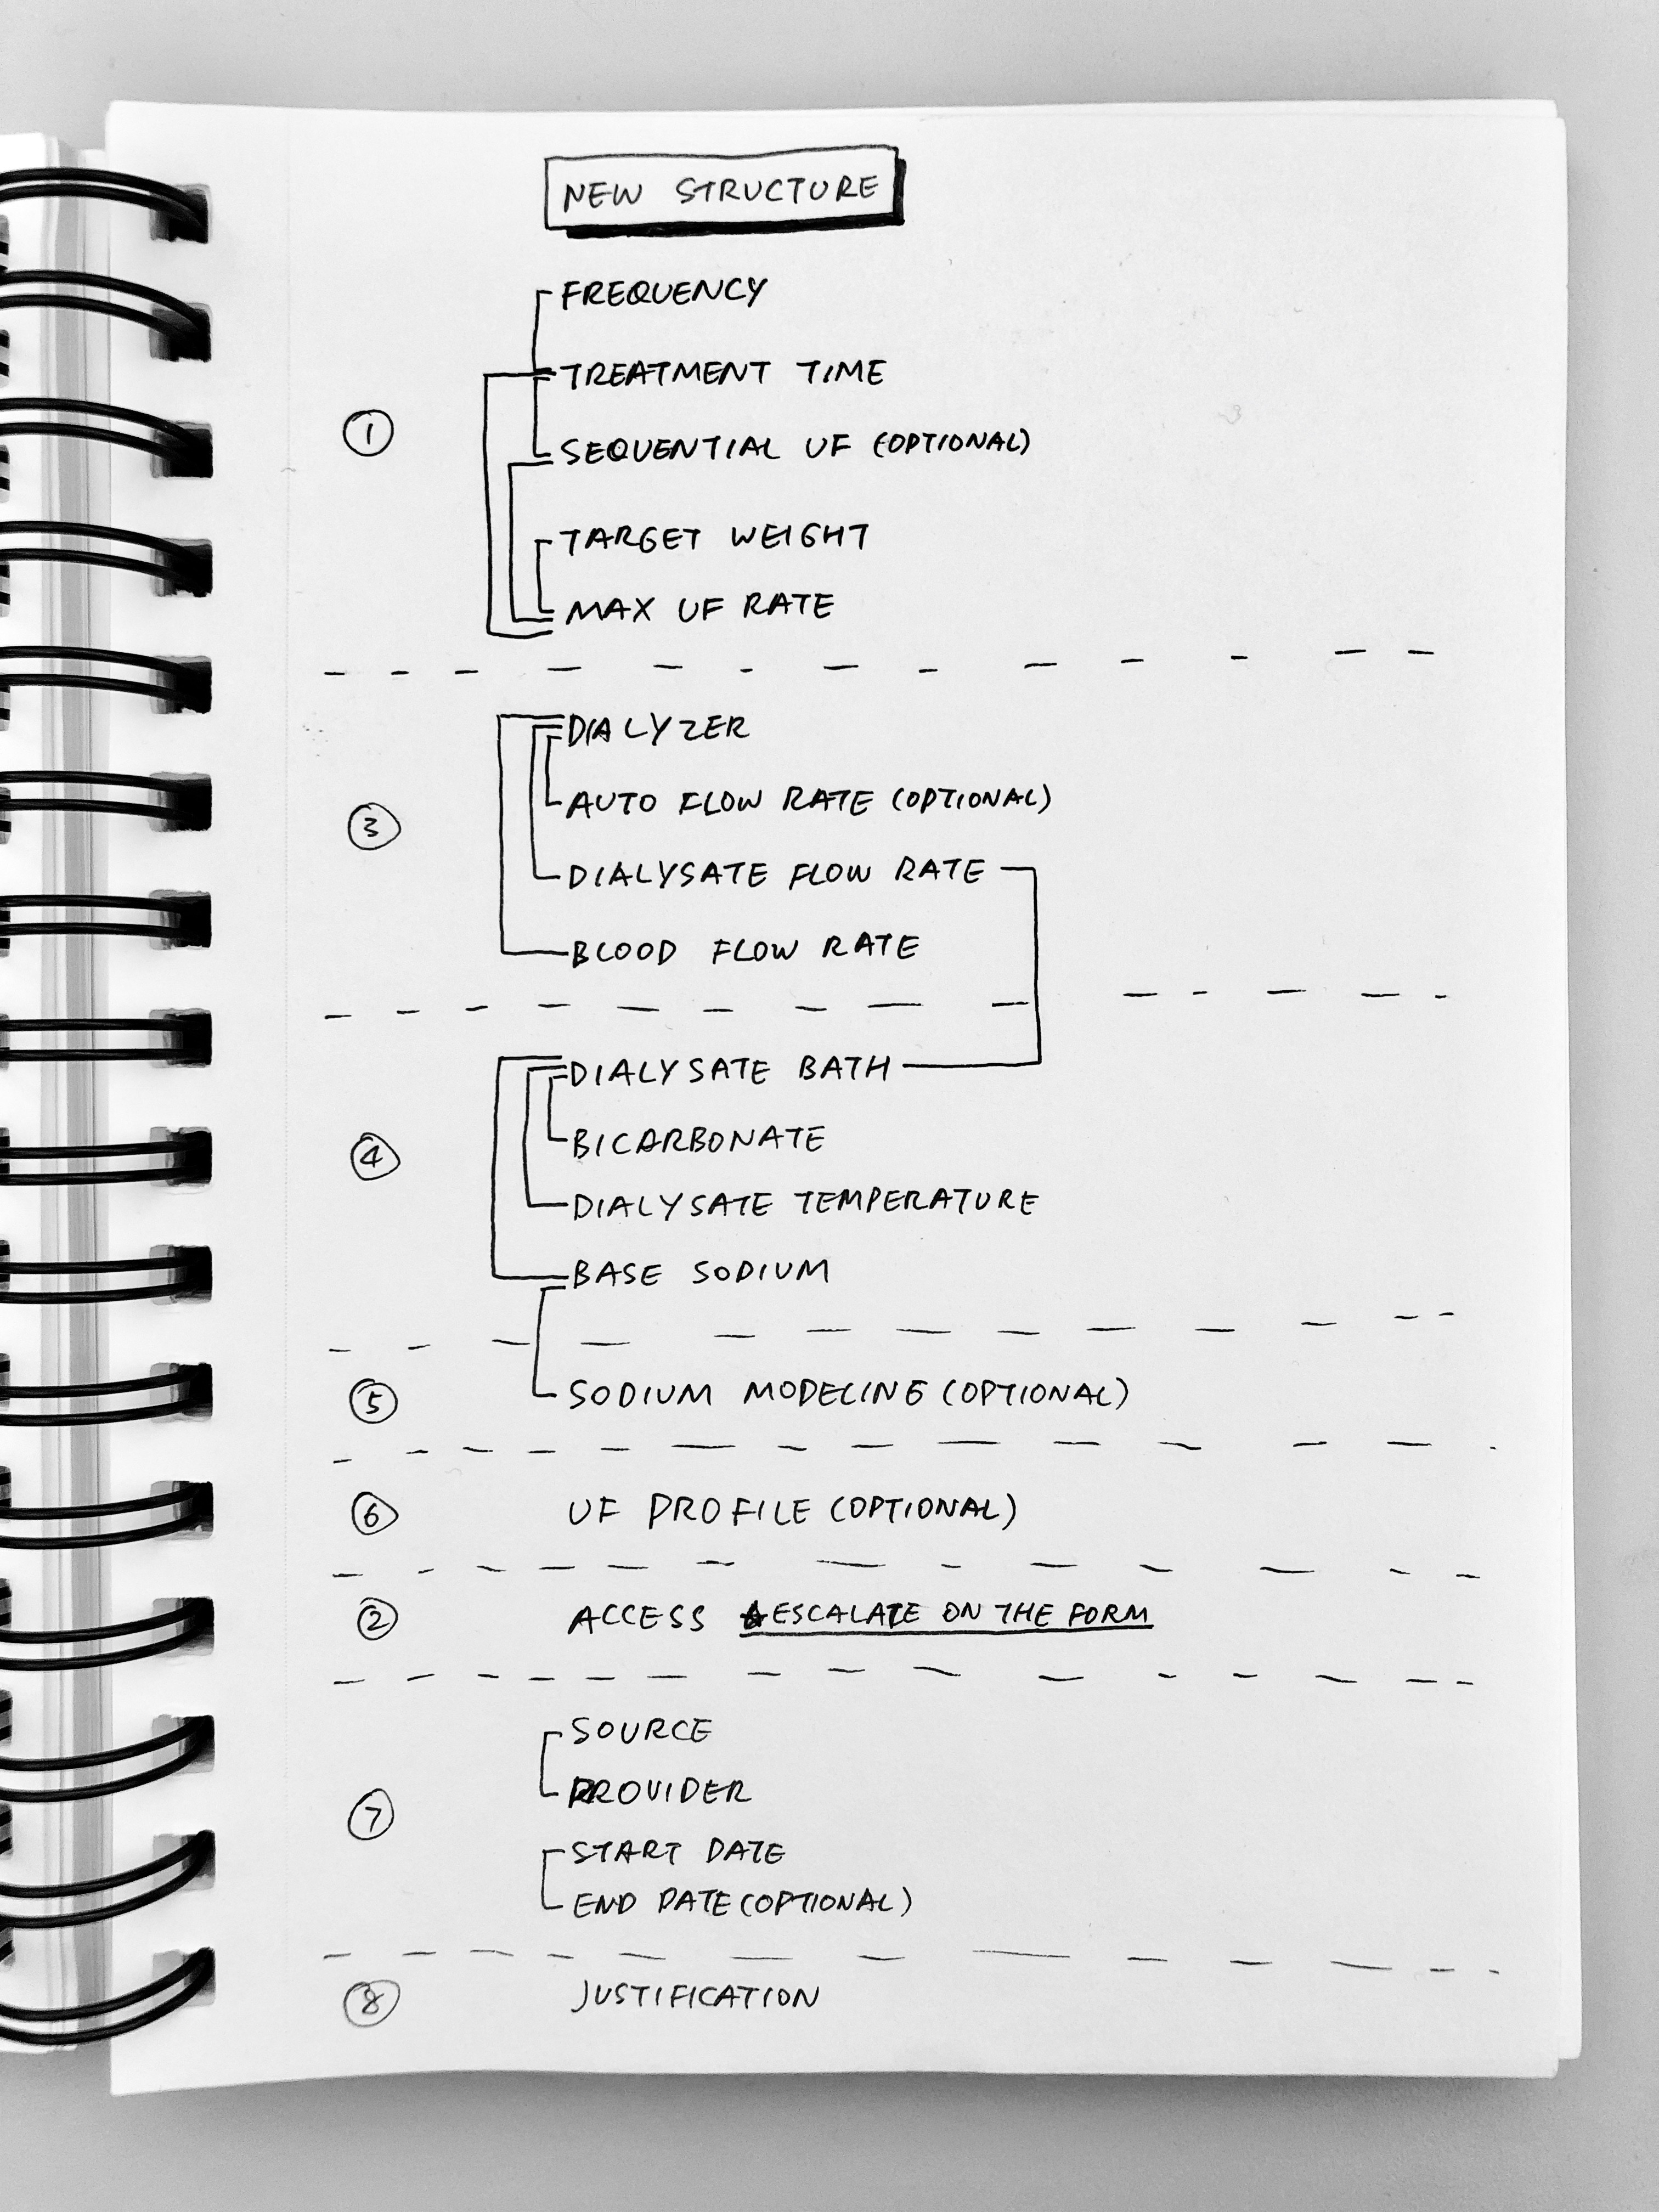 NEW STRUCTURE
FREQUENCY
TREATMENT TIME
①
SEQUENTIAL UF (OPTIONAL)
TARGET WEIGHT
MAX UF RATE
DIALYZER
AUTO FLOW RATE (OPTIONAL)
③
DIALYSATE FLOW RATE
BLOOD FLOW RATE
DIALYSATE BATH
BICARBONATE
④
DIALYSATE TEMPERATURE
BASE SODIUM
⑤ SODIUM MODELING (OPTIONAL)
⑥ UF PROFILE (OPTIONAL)
② ACCESS ★ESCALATE ON THE FORM
SOURCE
PROVIDER
⑦
START DATE
END DATE (OPTIONAL)
⑧ JUSTIFICATION